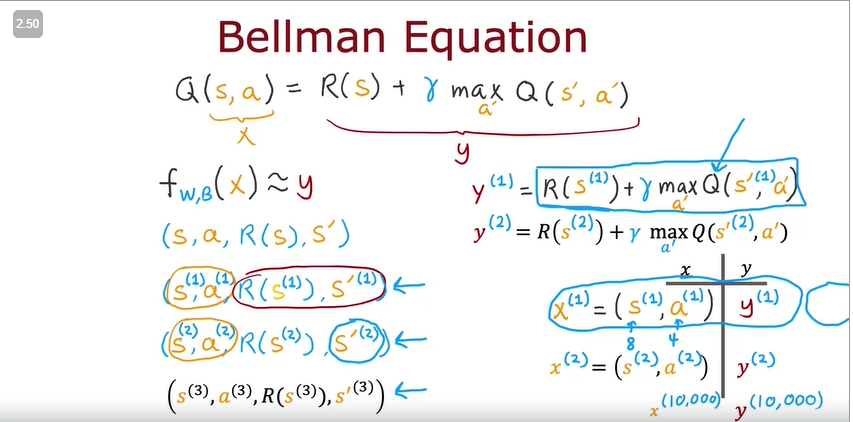 2.50
Bellman Equation
Q(s,a) = R(s) + γ max Q(s′, a′)
a′
x
y
f_{W,B}(x) ≈ y
(s, a, R(s), s′)
(s^{(1)}, a^{(1)}, R(s^{(1)}), s′^{(1)}) ←
(s^{(2)}, a^{(2)}, R(s^{(2)}), s′^{(2)}) ←
(s^{(3)}, a^{(3)}, R(s^{(3)}), s′^{(3)}) ←
y^{(1)} = R(s^{(1)}) + γ max Q(s′^{(1)}, a′)
a′
y^{(2)} = R(s^{(2)}) + γ max Q(s′^{(2)}, a′)
a′
x y
x^{(1)} = (s^{(1)}, a^{(1)}) y^{(1)}
8 4
x^{(2)} = (s^{(2)}, a^{(2)}) y^{(2)}
x^{(10,000)} y^{(10,000)}